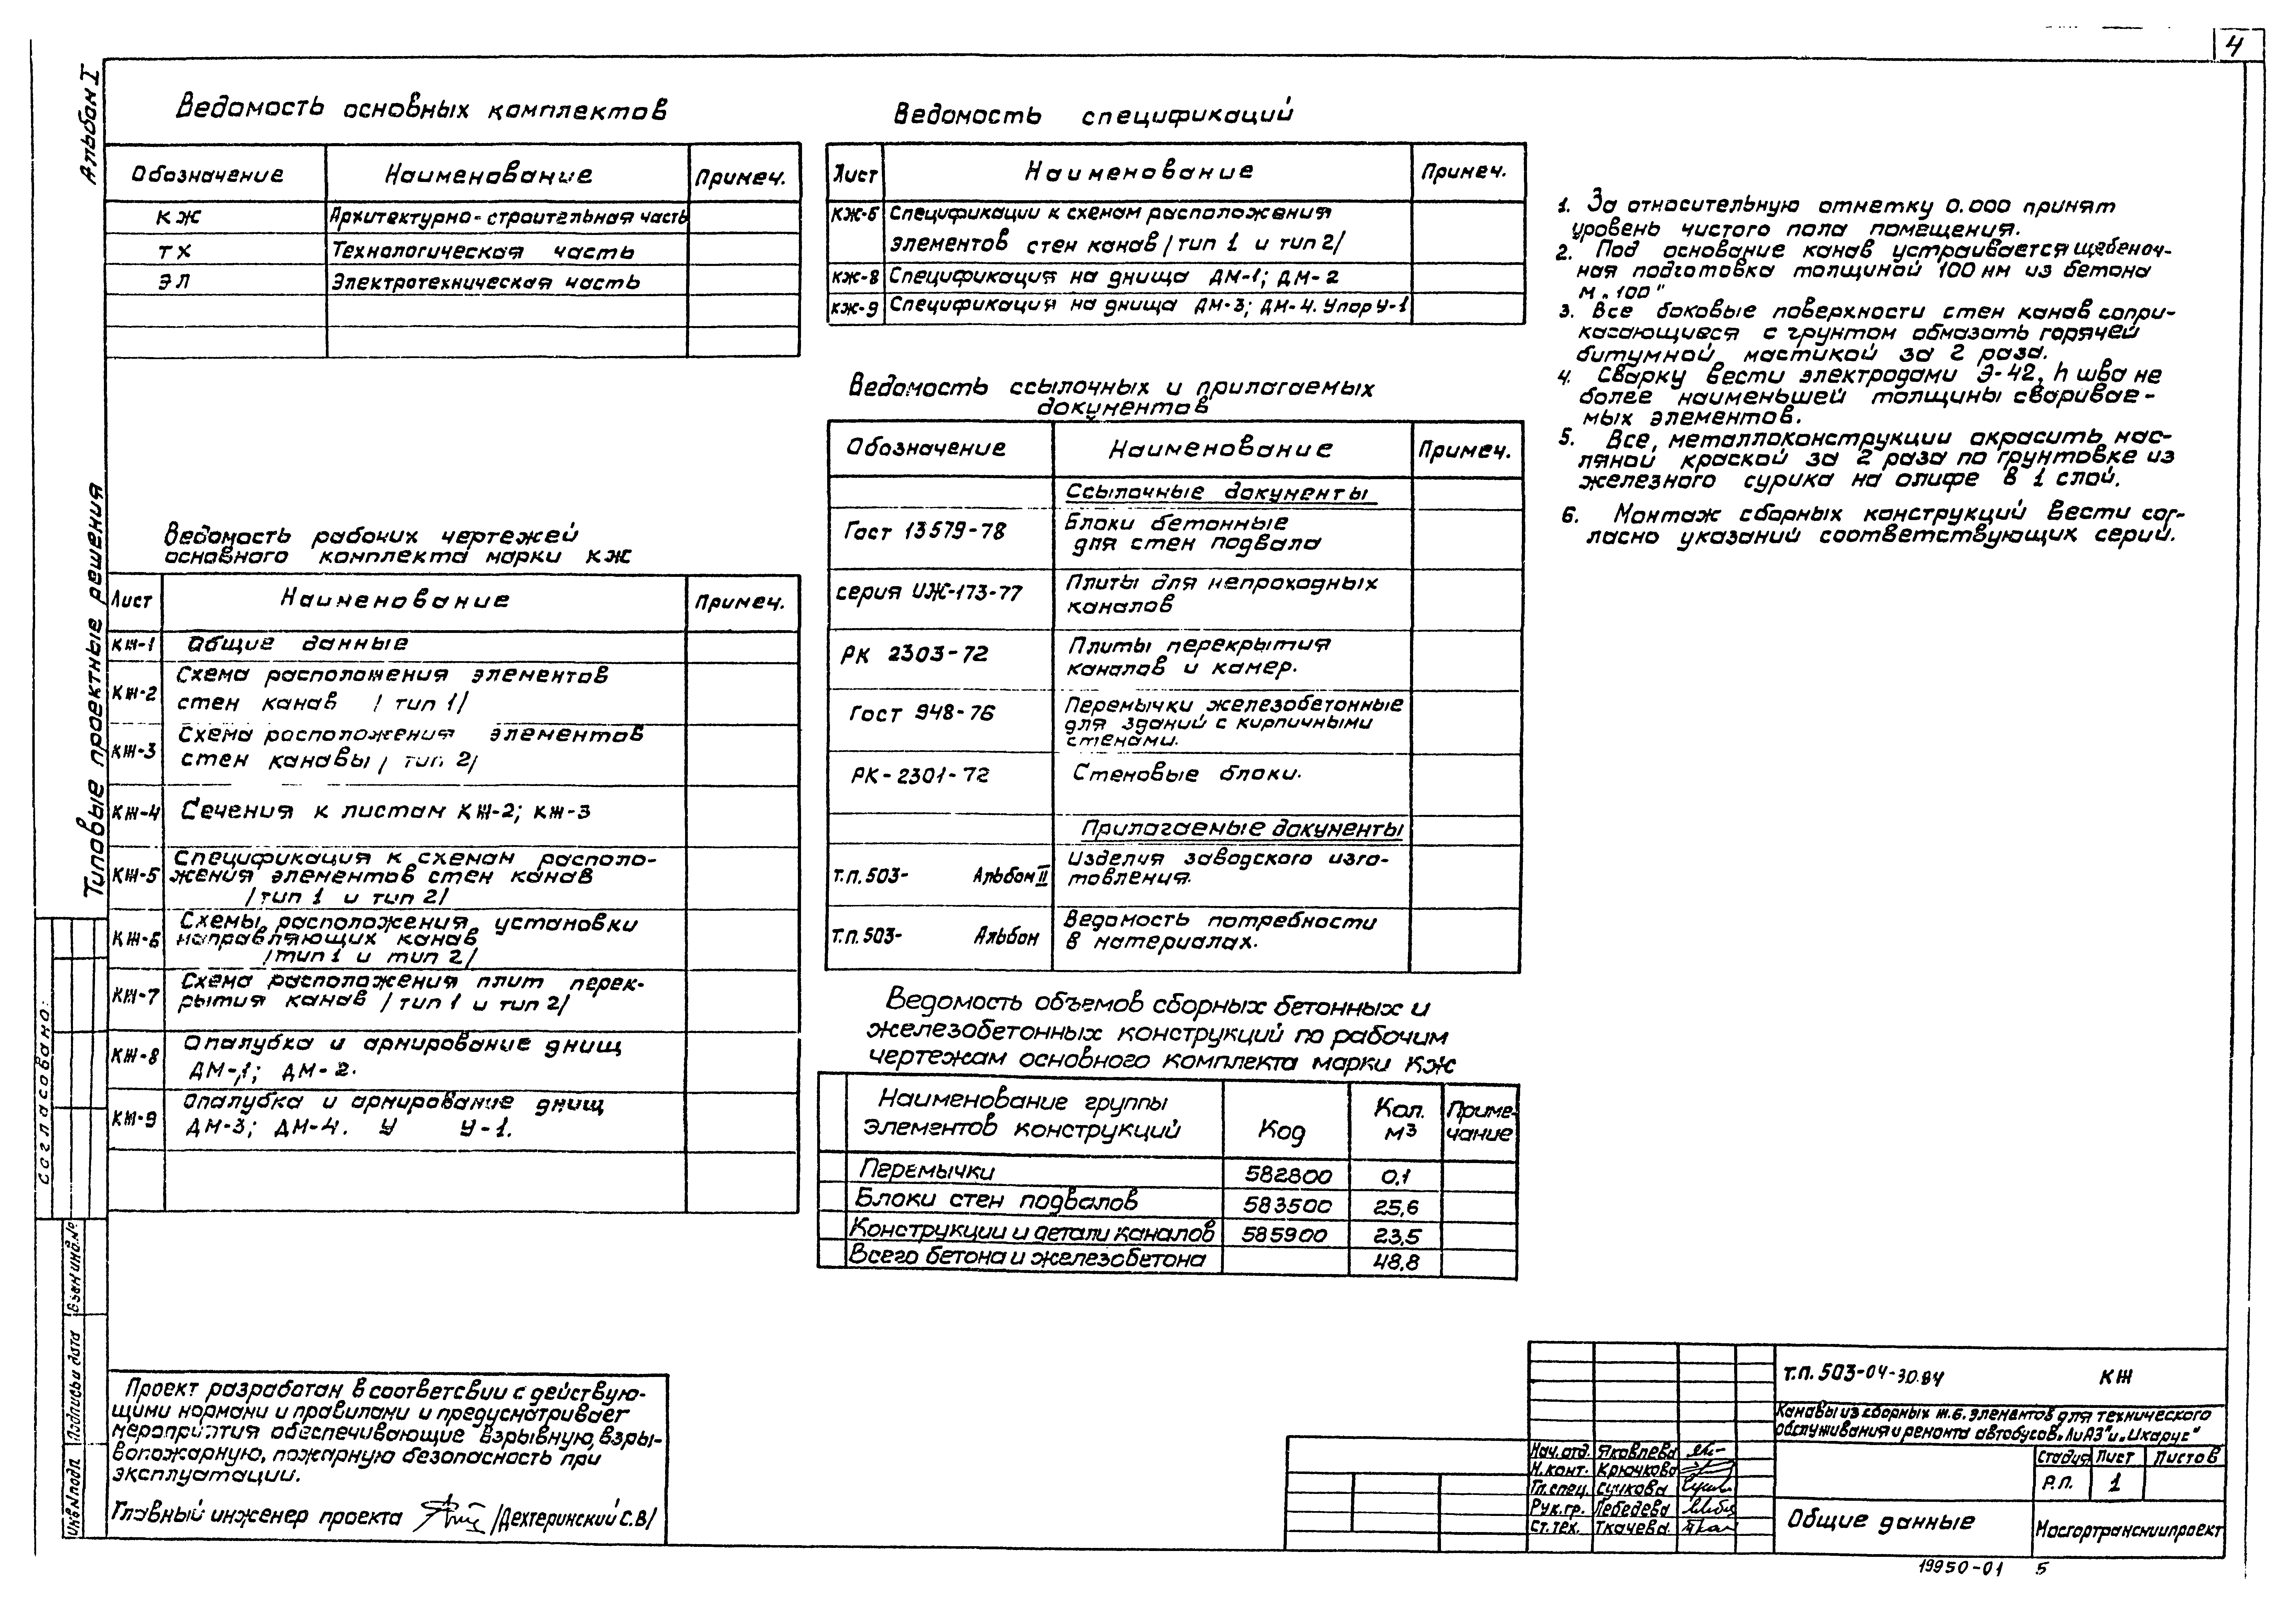 4
Альбом I
Типовые проектные решения
Ведомость основных комплектов
Обозначение Наименование Примеч.
КЖ Архитектурно-строительная часть
ТХ Технологическая часть
ЭЛ Электротехническая часть
Ведомость рабочих чертежей
основного комплекта марки КЖ
Лист Наименование Примеч.
КЖ-1 Общие данные
КЖ-2 Схема расположения элементов
стен канав /тип 1/
КЖ-3 Схема расположения элементов
стен канавы /тип 2/
КЖ-4 Сечения к листам КЖ-2; КЖ-3
КЖ-5 Спецификация к схемам располо-
жения элементов стен канав
/тип 1 и тип 2/
КЖ-6 Схемы расположения установки
направляющих канав
/тип 1 и тип 2/
КЖ-7 Схема расположения плит перек-
рытия канав /тип 1 и тип 2/
КЖ-8 Опалубка и армирование днищ
ДМ-1; ДМ-2.
КЖ-9 Опалубка и армирование днищ
ДМ-3; ДМ-4. У У-1.
Ведомость спецификаций
Лист Наименование Примеч.
КЖ-5 Спецификации к схемам расположения
элементов стен канав /тип 1 и тип 2/
КЖ-8 Спецификация на днища ДМ-1; ДМ-2
КЖ-9 Спецификация на днища ДМ-3; ДМ-4. Упор У-1
Ведомость ссылочных и прилагаемых
документов
Обозначение Наименование Примеч.
Ссылочные документы
Гост 13579-78 Блоки бетонные
для стен подвала
серия ИЖ-173-77 Плиты для непроходных
каналов
РК 2303-72 Плиты перекрытия
каналов и камер.
Гост 948-76 Перемычки железобетонные
для зданий с кирпичными
стенами.
РК-2301-72 Стеновые блоки.
Прилагаемые документы
Т.П. 503- Альбом II Изделия заводского изго-
товления.
Т.П. 503- Альбом Ведомость потребности
в материалах.
Ведомость объемов сборных бетонных и
железобетонных конструкций по рабочим
чертежам основного комплекта марки КЖ
Наименование группы
элементов конструкций Код Кол. м3 Приме-
чание
Перемычки 582800 0,1
Блоки стен подвалов 583500 25,6
Конструкции и детали каналов 585900 23,5
Всего бетона и железобетона 48,8
1. За относительную отметку 0.000 принят
уровень чистого пола помещения.
2. Под основание канав устраивается щебеноч-
ная подготовка толщиной 100 мм из бетона
М „100"
3. Все боковые поверхности стен канав сопри-
касающиеся с грунтом обмазать горячей
битумной мастикой за 2 раза.
4. Сварку вести электродами Э-42, h шва не
более наименьшей толщины сваривае-
мых элементов.
5. Все, металлоконструкции окрасить мас-
ляной краской за 2 раза по грунтовке из
железного сурика на олифе в 1 слой.
6. Монтаж сборных конструкций вести сог-
ласно указаний соответствующих серий.
Согласовано:
Взам инв.№
Подпись и дата
Инв № подл
Проект разработан в соответсвии с действую-
щими нормами и правилами и предусматривает
мероприятия обеспечивающие взрывную, взры-
вопожарную, пожарную безопасность при
эксплуатации.
Главный инженер проекта /Дехтеринский С.В/
Т.П. 503-04-30.84 КЖ
Канавы из сборных ж.б. элементов для технического
обслуживания и ремонта автобусов „ЛиАЗ" и „Икарус"
Нач.отд. Яковлева
Н.конт. Крючкова
Гл.спец. Сучкова
Рук.гр. Лебедева
Ст.тех. Ткачева.
Стадия Лист Листов
Р.П. 1
Общие данные
Мосгортрансниипроект
19950-01 5